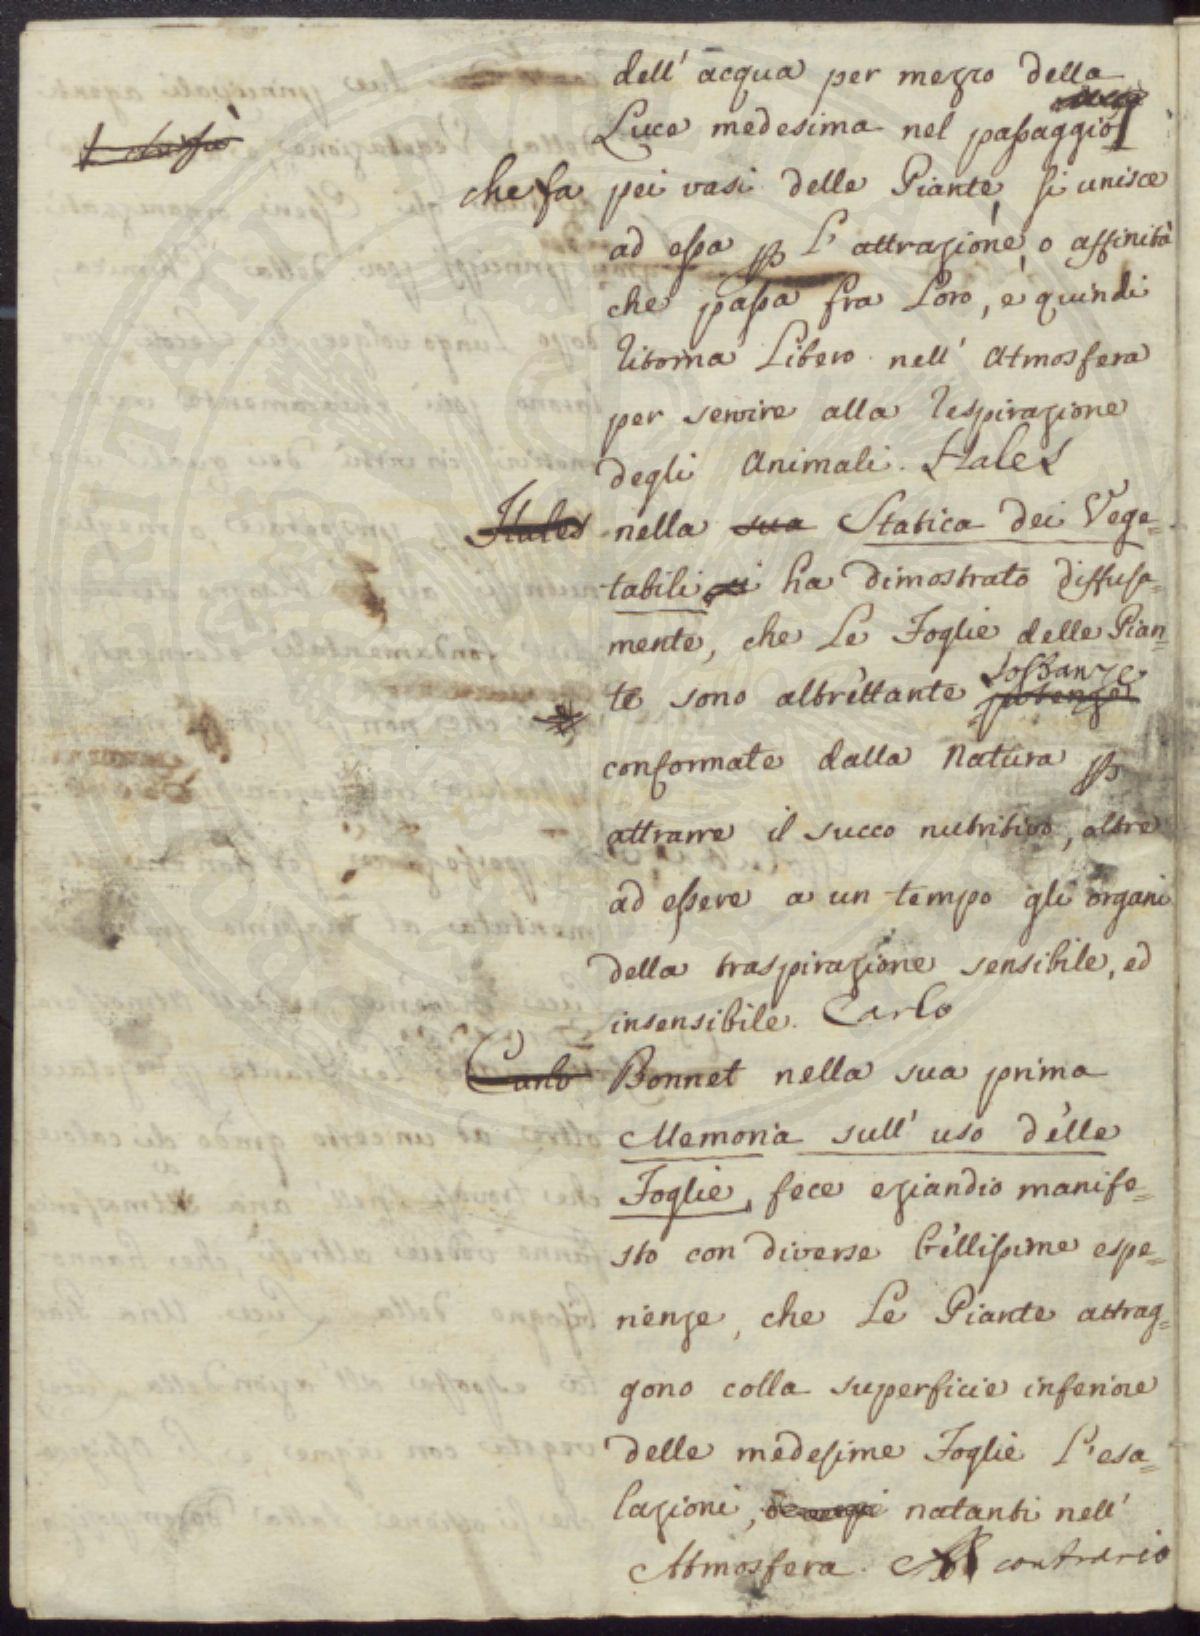 dell' acqua per mezzo della
Luce medesima nel passaggio
che fa pei vasi delle Piante, si unisce
ad essa p l' attrazione, o affinità
che passa fra Loro, e quindi
ritorna Libero nell' Atmosfera
per servire alla respirazione
degli Animali. Hales
Hales nella sua Statica dei Vege=
tabili ha dimostrato diffusa=
mente, che Le Foglie delle Pian=
te sono altrettante sostanze
conformate dalla Natura p
attrarre il succo nutritivo, oltre
ad essere a un tempo gli organi
della traspirazione sensibile, ed
insensibile. Carlo
Carlo Bonnet nella sua prima
Memoria sull' uso delle
Foglie, fece eziandio manife=
sto con diverse bellissime espe=
rienze, che Le Piante attrag=
gono colla superficie inferiore
delle medesime Foglie L'esa=
lazioni, natanti nell'
Atmosfera. Al contrario